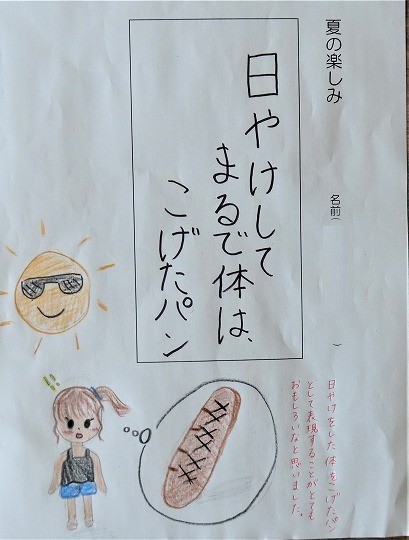 夏の楽しみ
名前( )
日やけして
まるで体は、
こげたパン
日やけをした体をこげたパン
として表現することがとても
おもしろいなと思いました。